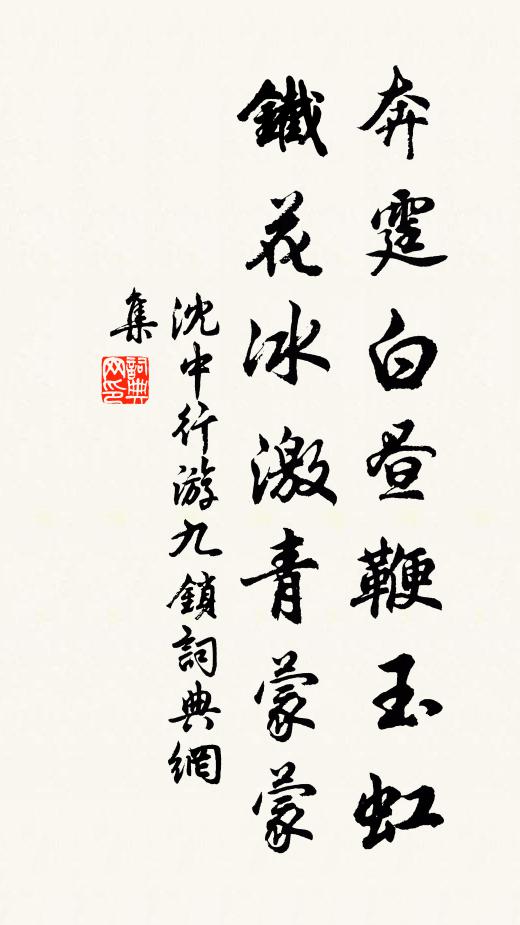 奔霆白昼鞭玉虹
鐵花冰激青蒙蒙
沈中行游九鎖詞典網
集
詞典网印